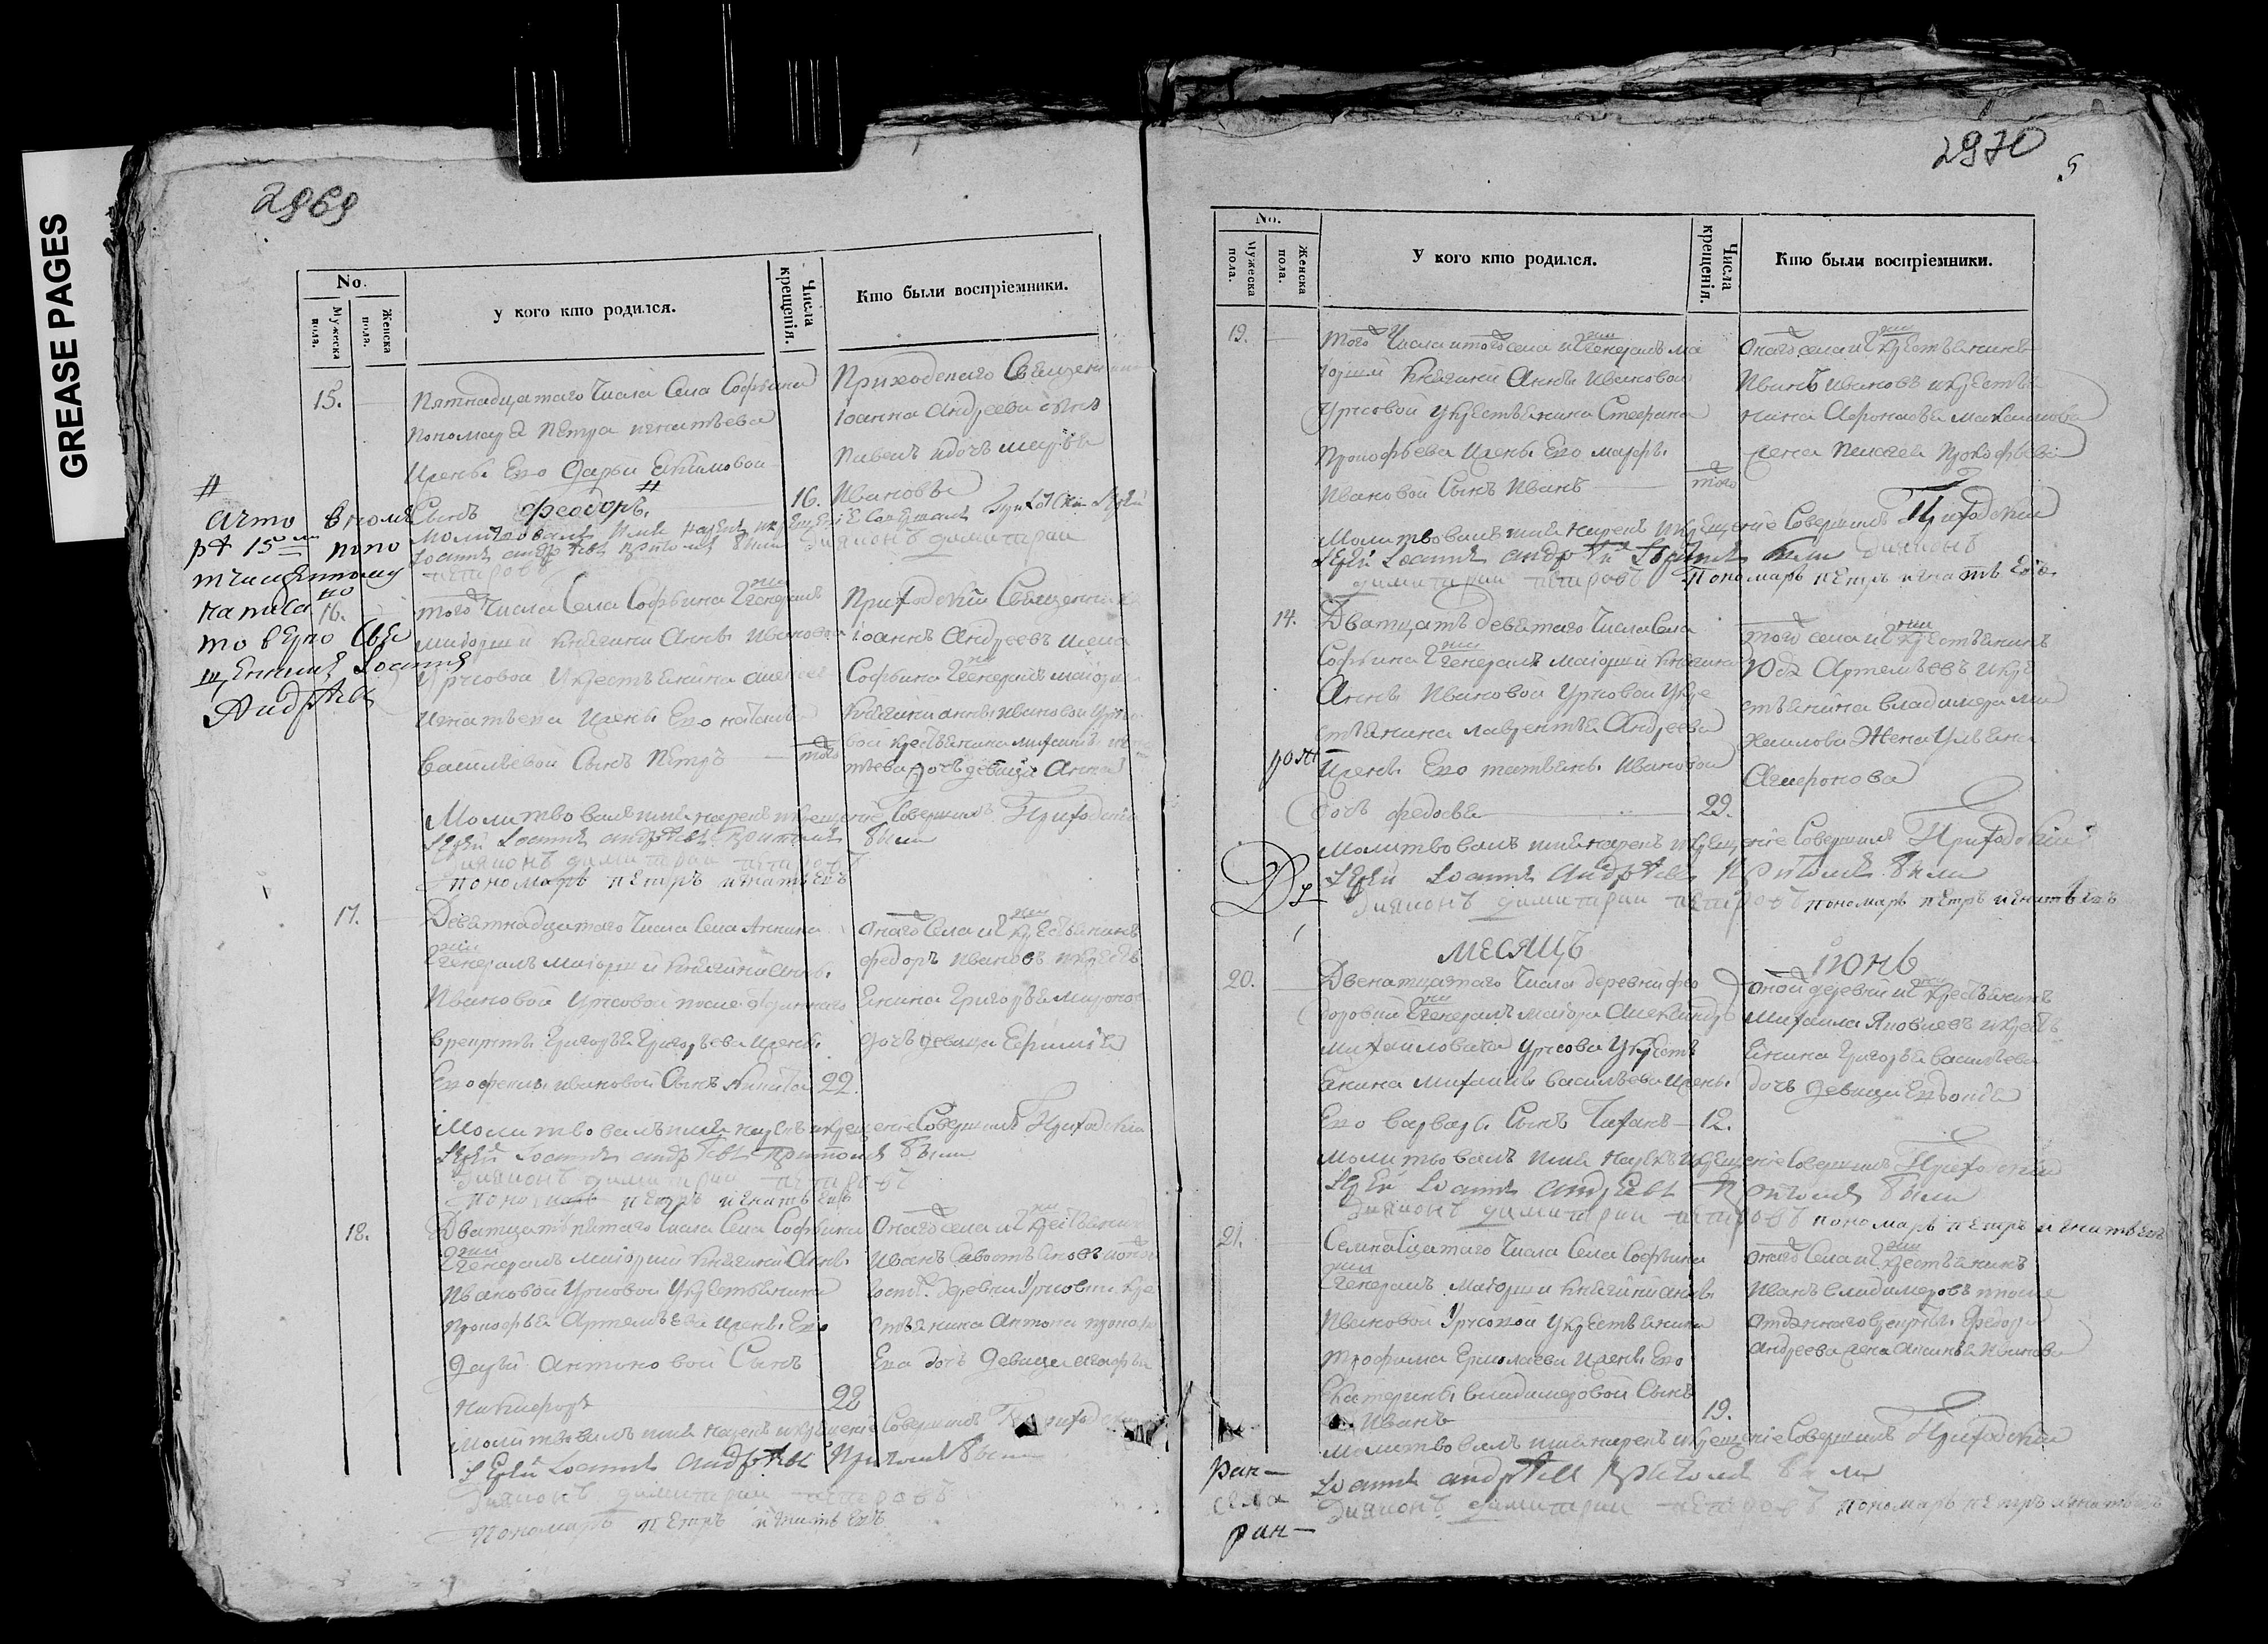 GREASE PAGES
2969
No.
Мужеска пола.
Женска пола.
У кого кто родился.
Числа крещенія.
Кто были воспріемники.
15.
Пятнадцатаго Числа Села Софьина
пономаря Петра игнатьева
Ижены Его Дарьи Екимовой
Сынъ феодоръ.
16.
Приходскаго Священни
Іоанна Андреева сынъ
Павелъ идочь марья
Ивановы
Молитвовалъ имя нарекъ икрещеніе Совершалъ
Іоаннъ андрѣевъ притомъ были дияконъ димитрии
петровъ
#
Ачто вноме
рѣ 15 м попо
тчищенному
написано
то верно Свя
щенникъ Іоаннъ
Андрѣевъ
16.
того Числа Села Софьина Генералъ
маіорши Княгини Анны Ивановой
Урусовой Укрестьянина
Игнатьева Ижены Его
Васильевой Сынъ Петръ
того
Приходский Священникъ
Іоаннъ Андреевъ
Софьина Генералъ маіорши
Княгини анны ивановой Урусо
вой крестьянина
тьева дочь девица Анна
Молитвовалъ имя нарекъ икрещеніе Совершилъ Приходский
Іерей Іоаннъ андрѣевъ притомъ были
дияконъ димитрии петровъ
пономарь петръ игнатьевъ
17.
Девятнадцатаго Числа Села Аннина
Генералъ маіорши Княгини анны
Ивановой Урусовой после отданнаго
врекруты Григорья Григорьева Ижены
Его феклы ивановой Сынъ Никита
22.
Онаго Села и Гжи Крестьянинъ
федоръ Ивановъ икресть
янина Григорья миронова
дочь девица Ефимія
Молитвовалъ имя нарекъ икрещеніе Совершилъ Приходский
Іерей Іоаннъ андрѣевъ притомъ были
дияконъ димитрии петровъ
пономарь петръ игнатьевъ
18.
Дватцать пятаго Числа Села Софьина
Генералъ маіорши Княгини Анны
Ивановой Урусовой Укрестьянина
Прокофья Артемьева Ижены Его
Дарьи Антоновой Сынъ
Никифоръ
28
Онаго села и Гжи Крестьянинъ
Иванъ Савостьяновъ
деревни Урусовой кре
стьянина Антона прокофь
Ева дочь девица агафья
Молитвовалъ имя нарекъ икрещеніе Совершилъ Приходский
Іерей Іоаннъ андрѣевъ Притомъ были
дияконъ димитрии петровъ
Пономарь петръ игнатьевъ
2970
5
No.
Мужеска пола.
Женска пола.
У кого кто родился.
Числа крещенія.
Кто были воспріемники.
19.
того Числа итого села и Гжи Генералъ ма
іорши Княгини Анны Ивановой
Урусовой Укрестьянина Стефана
Прокофьева Ижены Его марфы
Ивановой Сынъ Иванъ
того
Онаго села и Гжи Крестьянинъ
Иванъ ивановъ икрестья
нина Афонасья
жена Пелагея Прокофьева
Молитвовалъ имя нарекъ икрещеніе Совершилъ Приходский
Іерей Іоаннъ андрѣевъ были дияконъ
димитрии петровъ Пономарь петръ игнатьевъ
14.
Дватцать девятаго Числа Села
Софьина Генералъ маіорши Княгини
Анны Ивановой Урусовой Укре
стьянина лаврентья Андреева
Ижены Его татьяны Ивановой
дочь федосья
29.
того села и Гжи Крестьянинъ
Артемьевъ икре
стьянина владимера ми
хаилова Жена Ульяна
Агафонова
Молитвовалъ имя нарекъ икрещеніе Совершилъ Приходский
Іерей Іоаннъ Андрѣевъ Притомъ были
дияконъ димитрии петровъ пономарь петръ игнатьевъ
МЕСЯЦЪ Іюнь
20.
Двенатцатаго Числа деревни фео
доровки Генералъ маіора Александра
михаиловича Урусова Укресть
янина михаилы васильева Ижены
Его варвары Сынъ
12.
Оной деревни и Гна Крестьянинъ
михаила Яковлевъ икресть
янина Григорья васильева
дочь девица Евдокия
Молитвовалъ имя нарекъ икрещеніе Совершилъ Приходский
Іерей Іоаннъ андреевъ притомъ были
дияконъ димитрии петровъ пономарь петръ игнатьевъ
21.
Семнатцатаго Числа Села Софьина
Генералъ маіорши Княгини анны
Ивановой Урусовой Укрестьянина
трофима Ермолаева Ижены Его
Екатерины владимеровой Сынъ
Иванъ
19.
Онаго Села и Гжи Крестьянинъ
Иванъ владимеровъ ипосле
отданнаго врекруты федора
андреева жена Аксинья Иванова
Молитвовалъ имя нарекъ икрещеніе Совершилъ Приходский
Іоаннъ андрѣевъ притомъ были
дияконъ димитрии петровъ пономарь петръ игнатьевъ